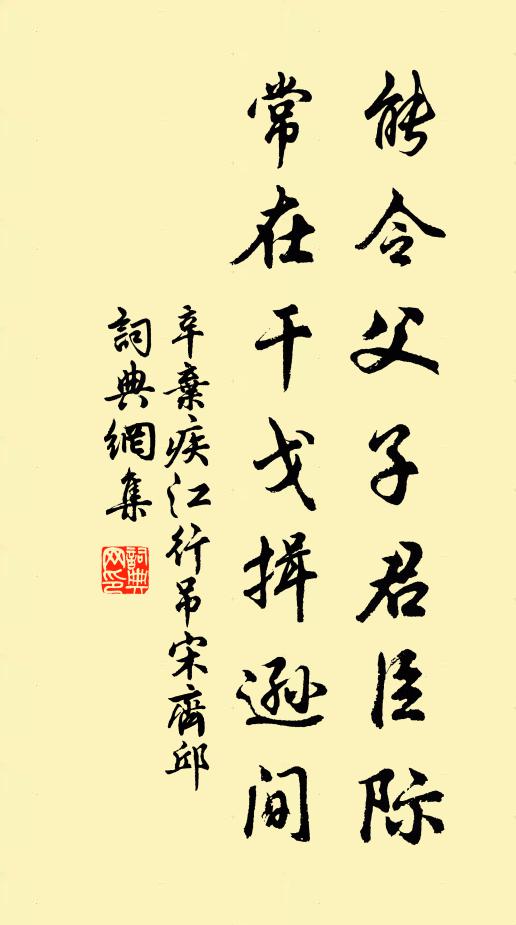 能令父子君臣际
常在干戈揖逊间
辛棄疾江行吊宋齊邱
詞典網集
詞典网印